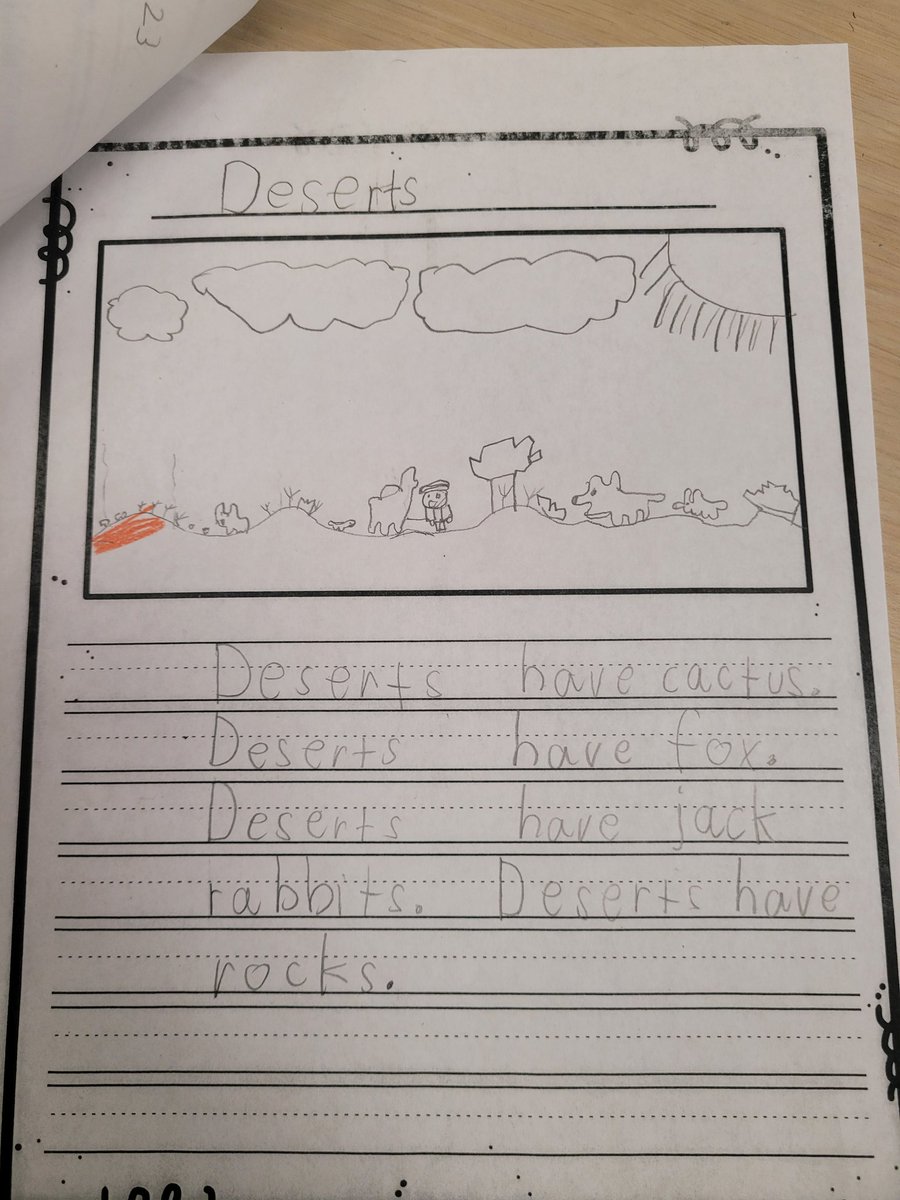 23
Deserts
Deserts have cactus.
Deserts have fox.
Deserts have jack
rabbits. Deserts have
rocks.